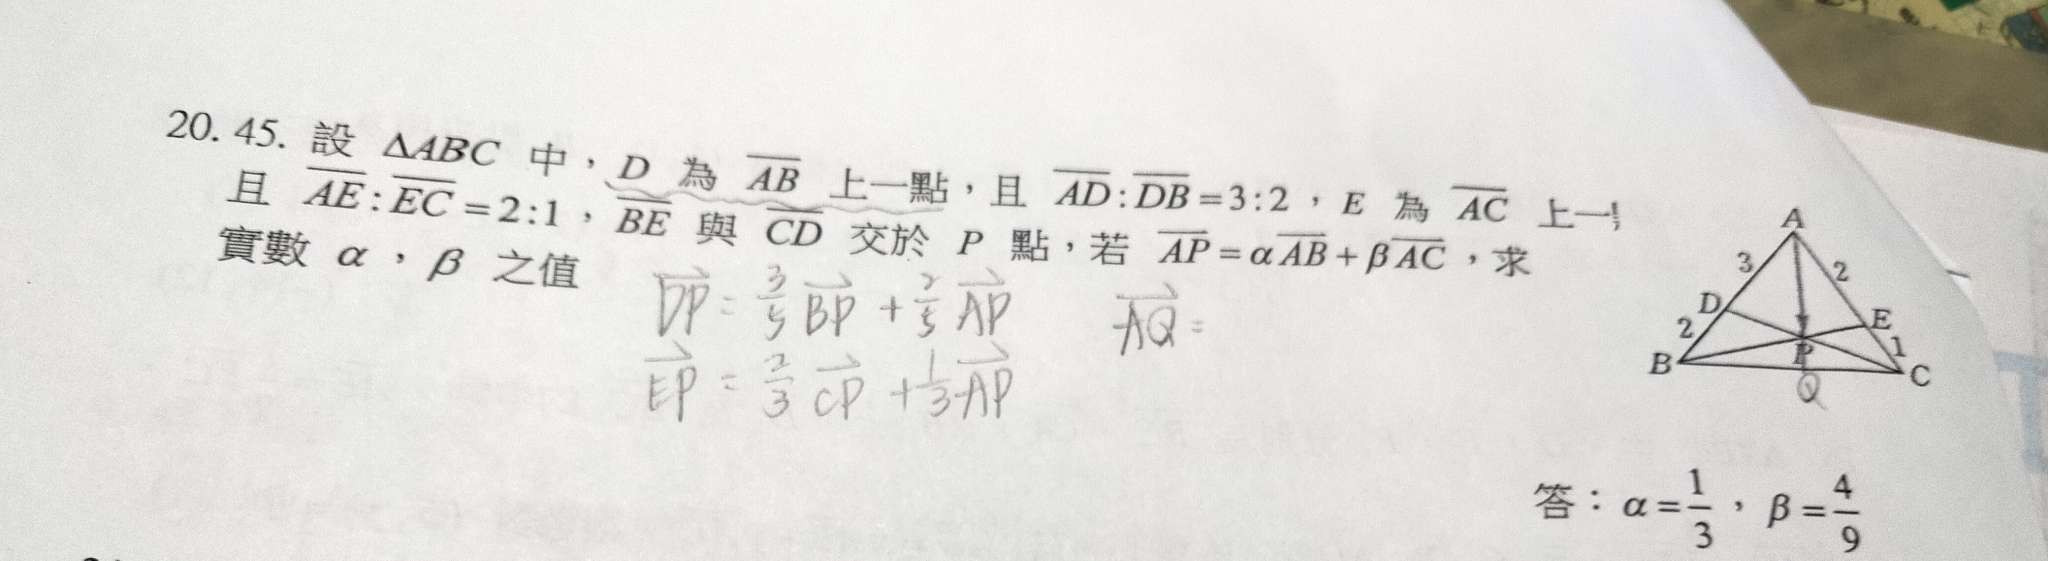 20. 45. 設 ΔABC 中，D 為 AB 上一點，且 AD:DB=3:2，E 為 AC 上一
且 AE:EC=2:1，BE 與 CD 交於 P 點，若 AP=αAB+βAC，求
實數 α，β 之值
DP = 3/5 BP + 2/5 AP
AQ =
EP = 2/3 CP + 1/3 AP
A
3
2
D
E
2
1
P
B
C
Q
答：α=1/3，β=4/9